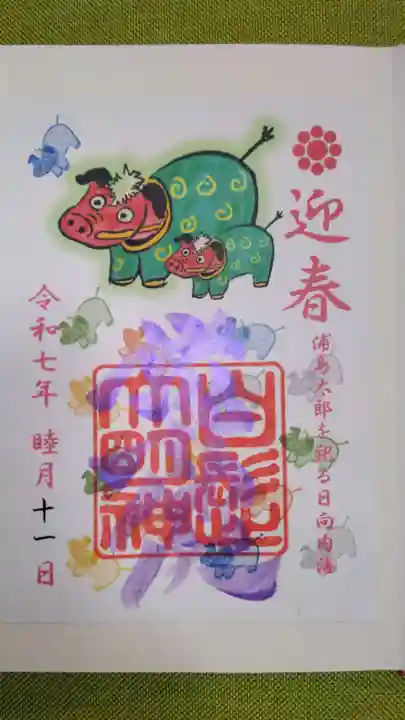 迎春
浦島太郎を祀る日向内海
白髭
大明神
令和七年 睦月十一日